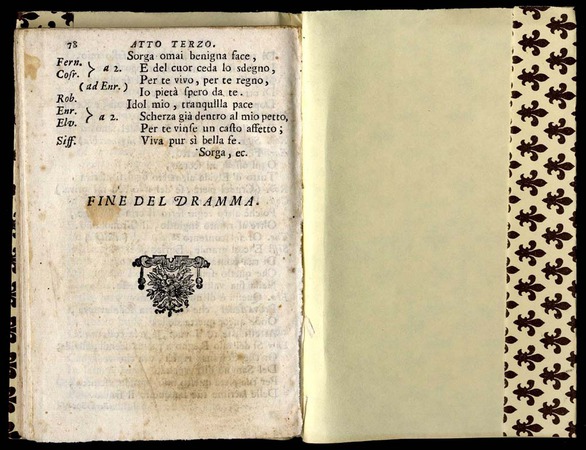 78 ATTO TERZO.
Sorga omai benigna face,
Fern. Cosr. } a 2. E del cuor ceda lo sdegno,
Per te vivo, per te regno,
(ad Enr.)
Rob. Io pietà spero da te.
Idol mio, tranquilla pace
Enr. Elv. } a 2. Scherza già dentro al mio petto,
Per te vinse un casto affetto;
Siff. Viva pur sì bella fe.
Sorga, ec.
FINE DEL DRAMMA.